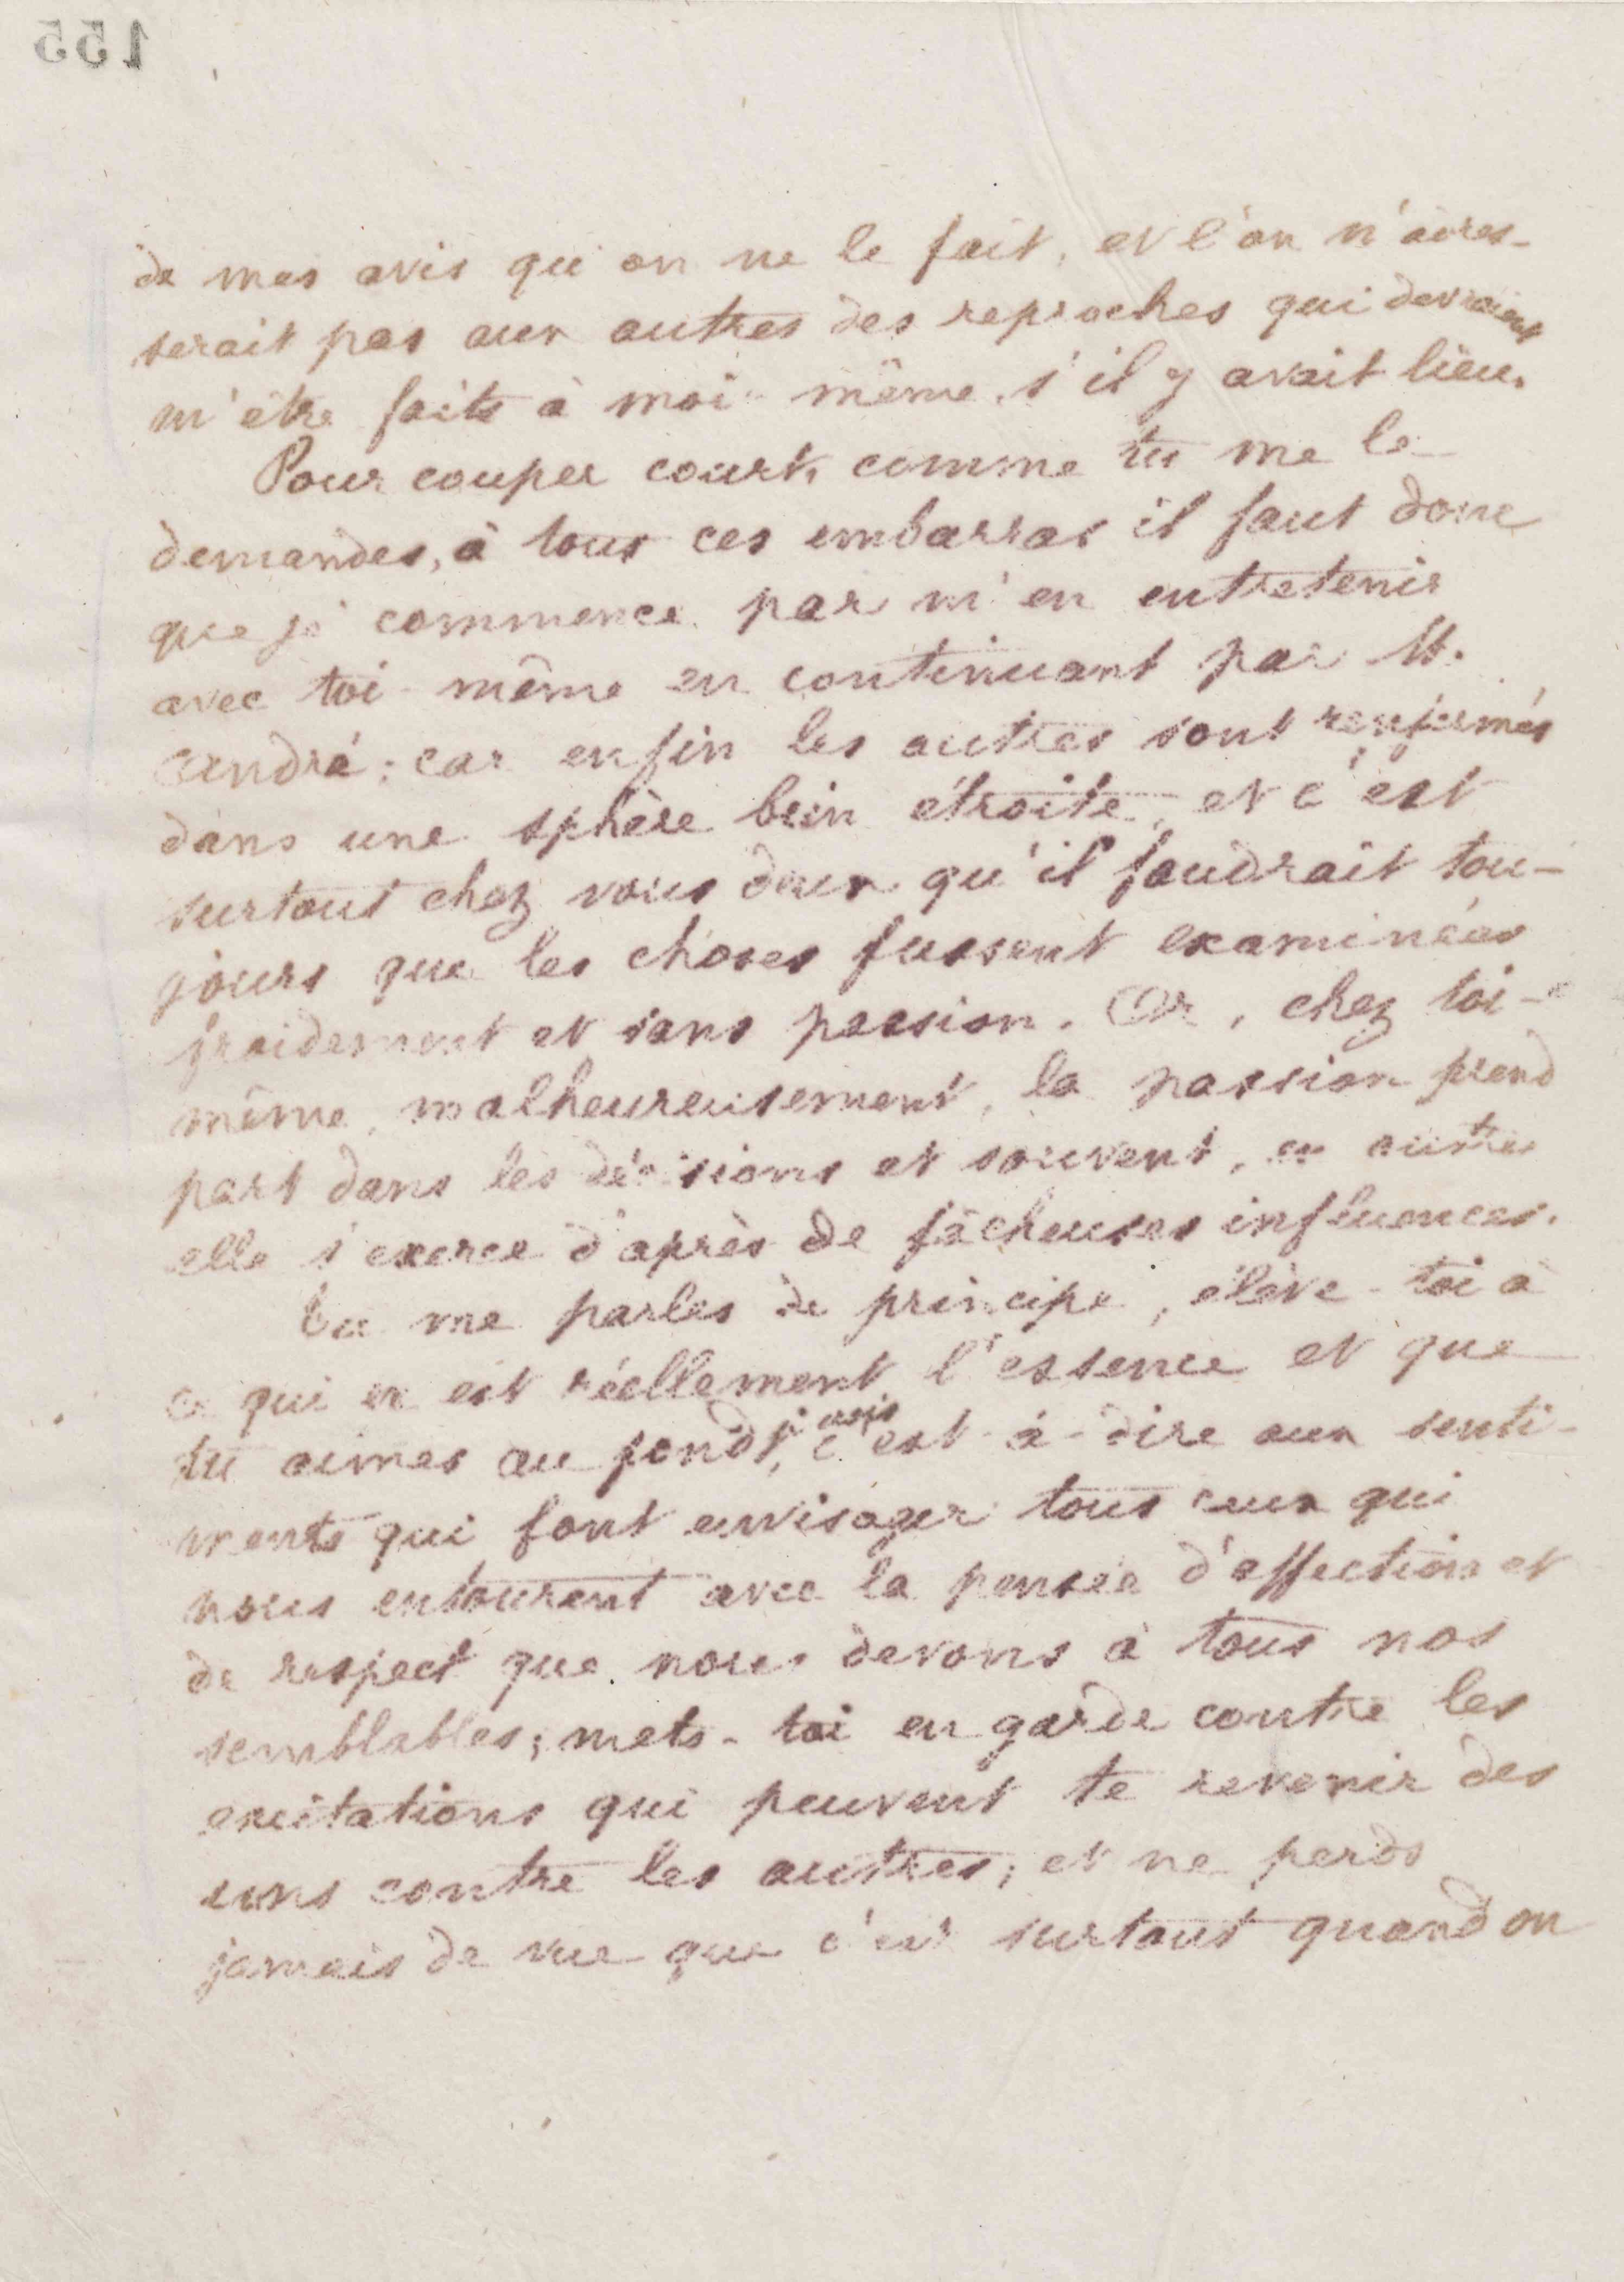 155
de mes avis qu'on ne le fait, et l'on n'adres-
serait pas aux autres des reproches qui devraient
m'être faits à moi-même, s'il y avait lieu.
Pour couper court, comme tu me le
demandes, à tous ces embarras il faut donc
que je commence par m'en entretenir
avec toi-même en continuant par M.
André; car enfin les autres sont renfermés
dans une sphère bien étroite, et c'est
surtout chez vous deux qu'il faudrait tou-
jours que les choses fussent examinées
froidement et sans passion. Or, chez toi-
même, malheureusement, la passion prend
part dans les décisions et souvent, en outre
elle s'exerce d'après de fâcheuses influences.
Tu me parles de principe, élève-toi à
ce qui en est réellement l'essence et que
tu aimes au fond, je crois, c'est-à-dire aux senti-
ments qui font envisager tous ceux qui
nous entourent avec la pensée d'affection et
de respect que nous devons à tous nos
semblables; mets-toi en garde contre les
excitations qui peuvent te revenir des
uns contre les autres; et ne perds
jamais de vue que c'est surtout quand on